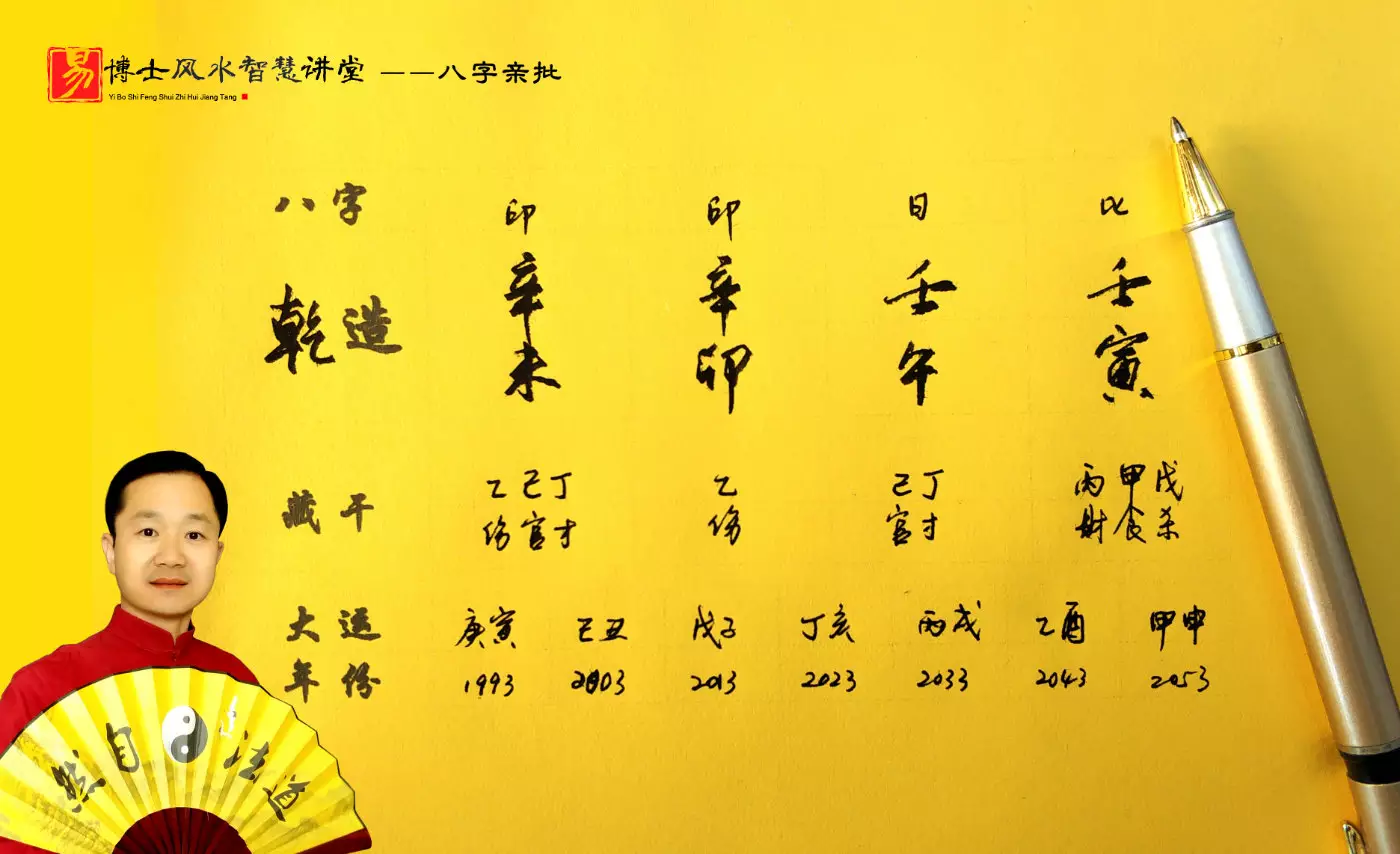 易博士风水智慧讲堂 ——八字亲批
Yi Bo Shi Feng Shui Zhi Hui Jiang Tang
八字 印 印 日 比
乾造 辛未 辛卯 壬午 壬寅
藏干 乙己丁 乙 己丁 丙甲戊
伤官才 伤 官才 财食杀
大运 庚寅 己丑 戊子 丁亥 丙戌 乙酉 甲申
年份 1993 2003 2013 2023 2033 2043 2053
道法自然